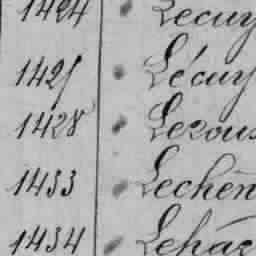 1424 Lecuy
1425 Lécuy
1428 Lerous
1433 Lechên
1434 Lehár